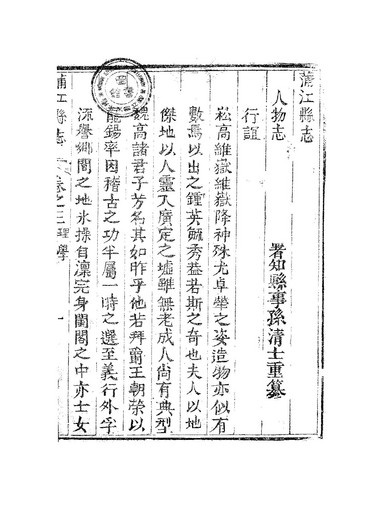 蒲江縣志
人物志
署知縣事孫清士重纂
行誼
崧高維嶽維嶽降神殊尤卓犖之姿造物亦似有
數焉以出之鍾英毓秀益若斯之奇也夫人以地
傑地以人靈入廣定之墟雖無老成人尚有典型
魏高諸君子芳名其如昨乎他若拜爵王朝榮以
鞶錫率因稽古之功半屬一時之選至義行外孚
流譽鄉閭之地氷操自凜完身閨閣之中亦士女
蒲江縣志
卷之三
理學
一